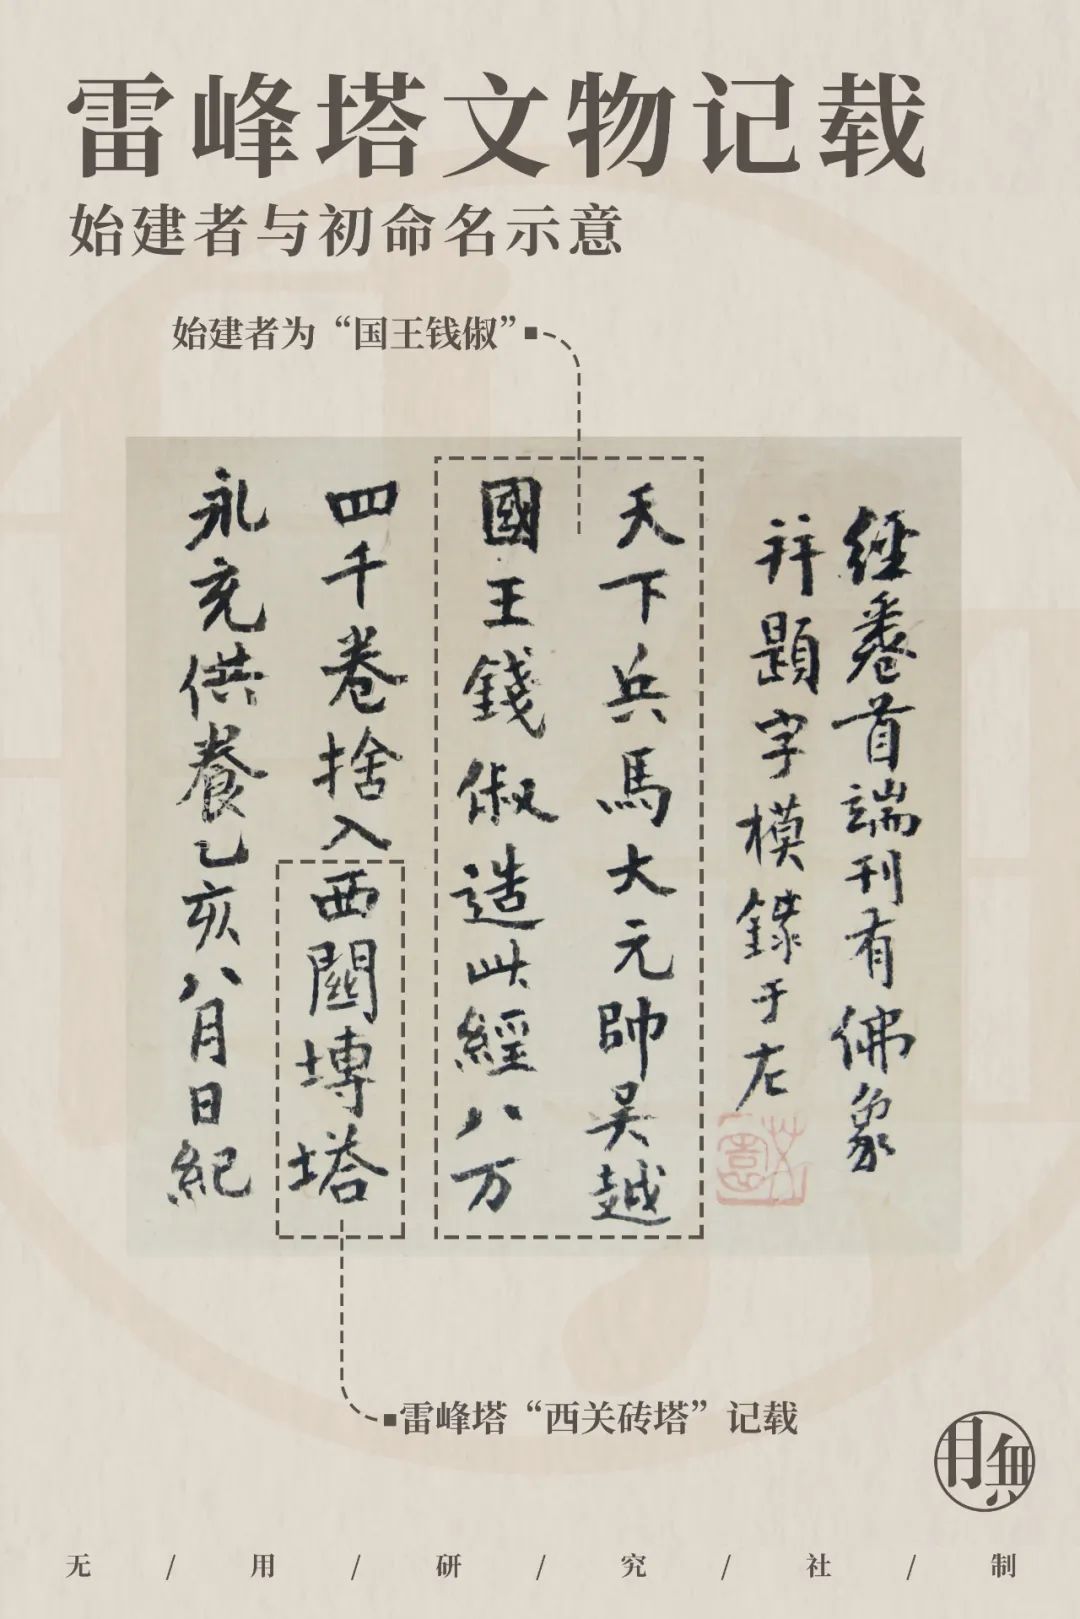 雷峰塔文物记载
始建者与初命名示意
始建者为“国王钱俶”
經卷首端刊有佛象
并題字模錄于左
天下兵馬大元帥吳越
國王錢俶造此經八万
四千卷捨入西關塼塔
永充供養乙亥八月日紀
雷峰塔“西关砖塔”记载
无/用/研/究/社/制